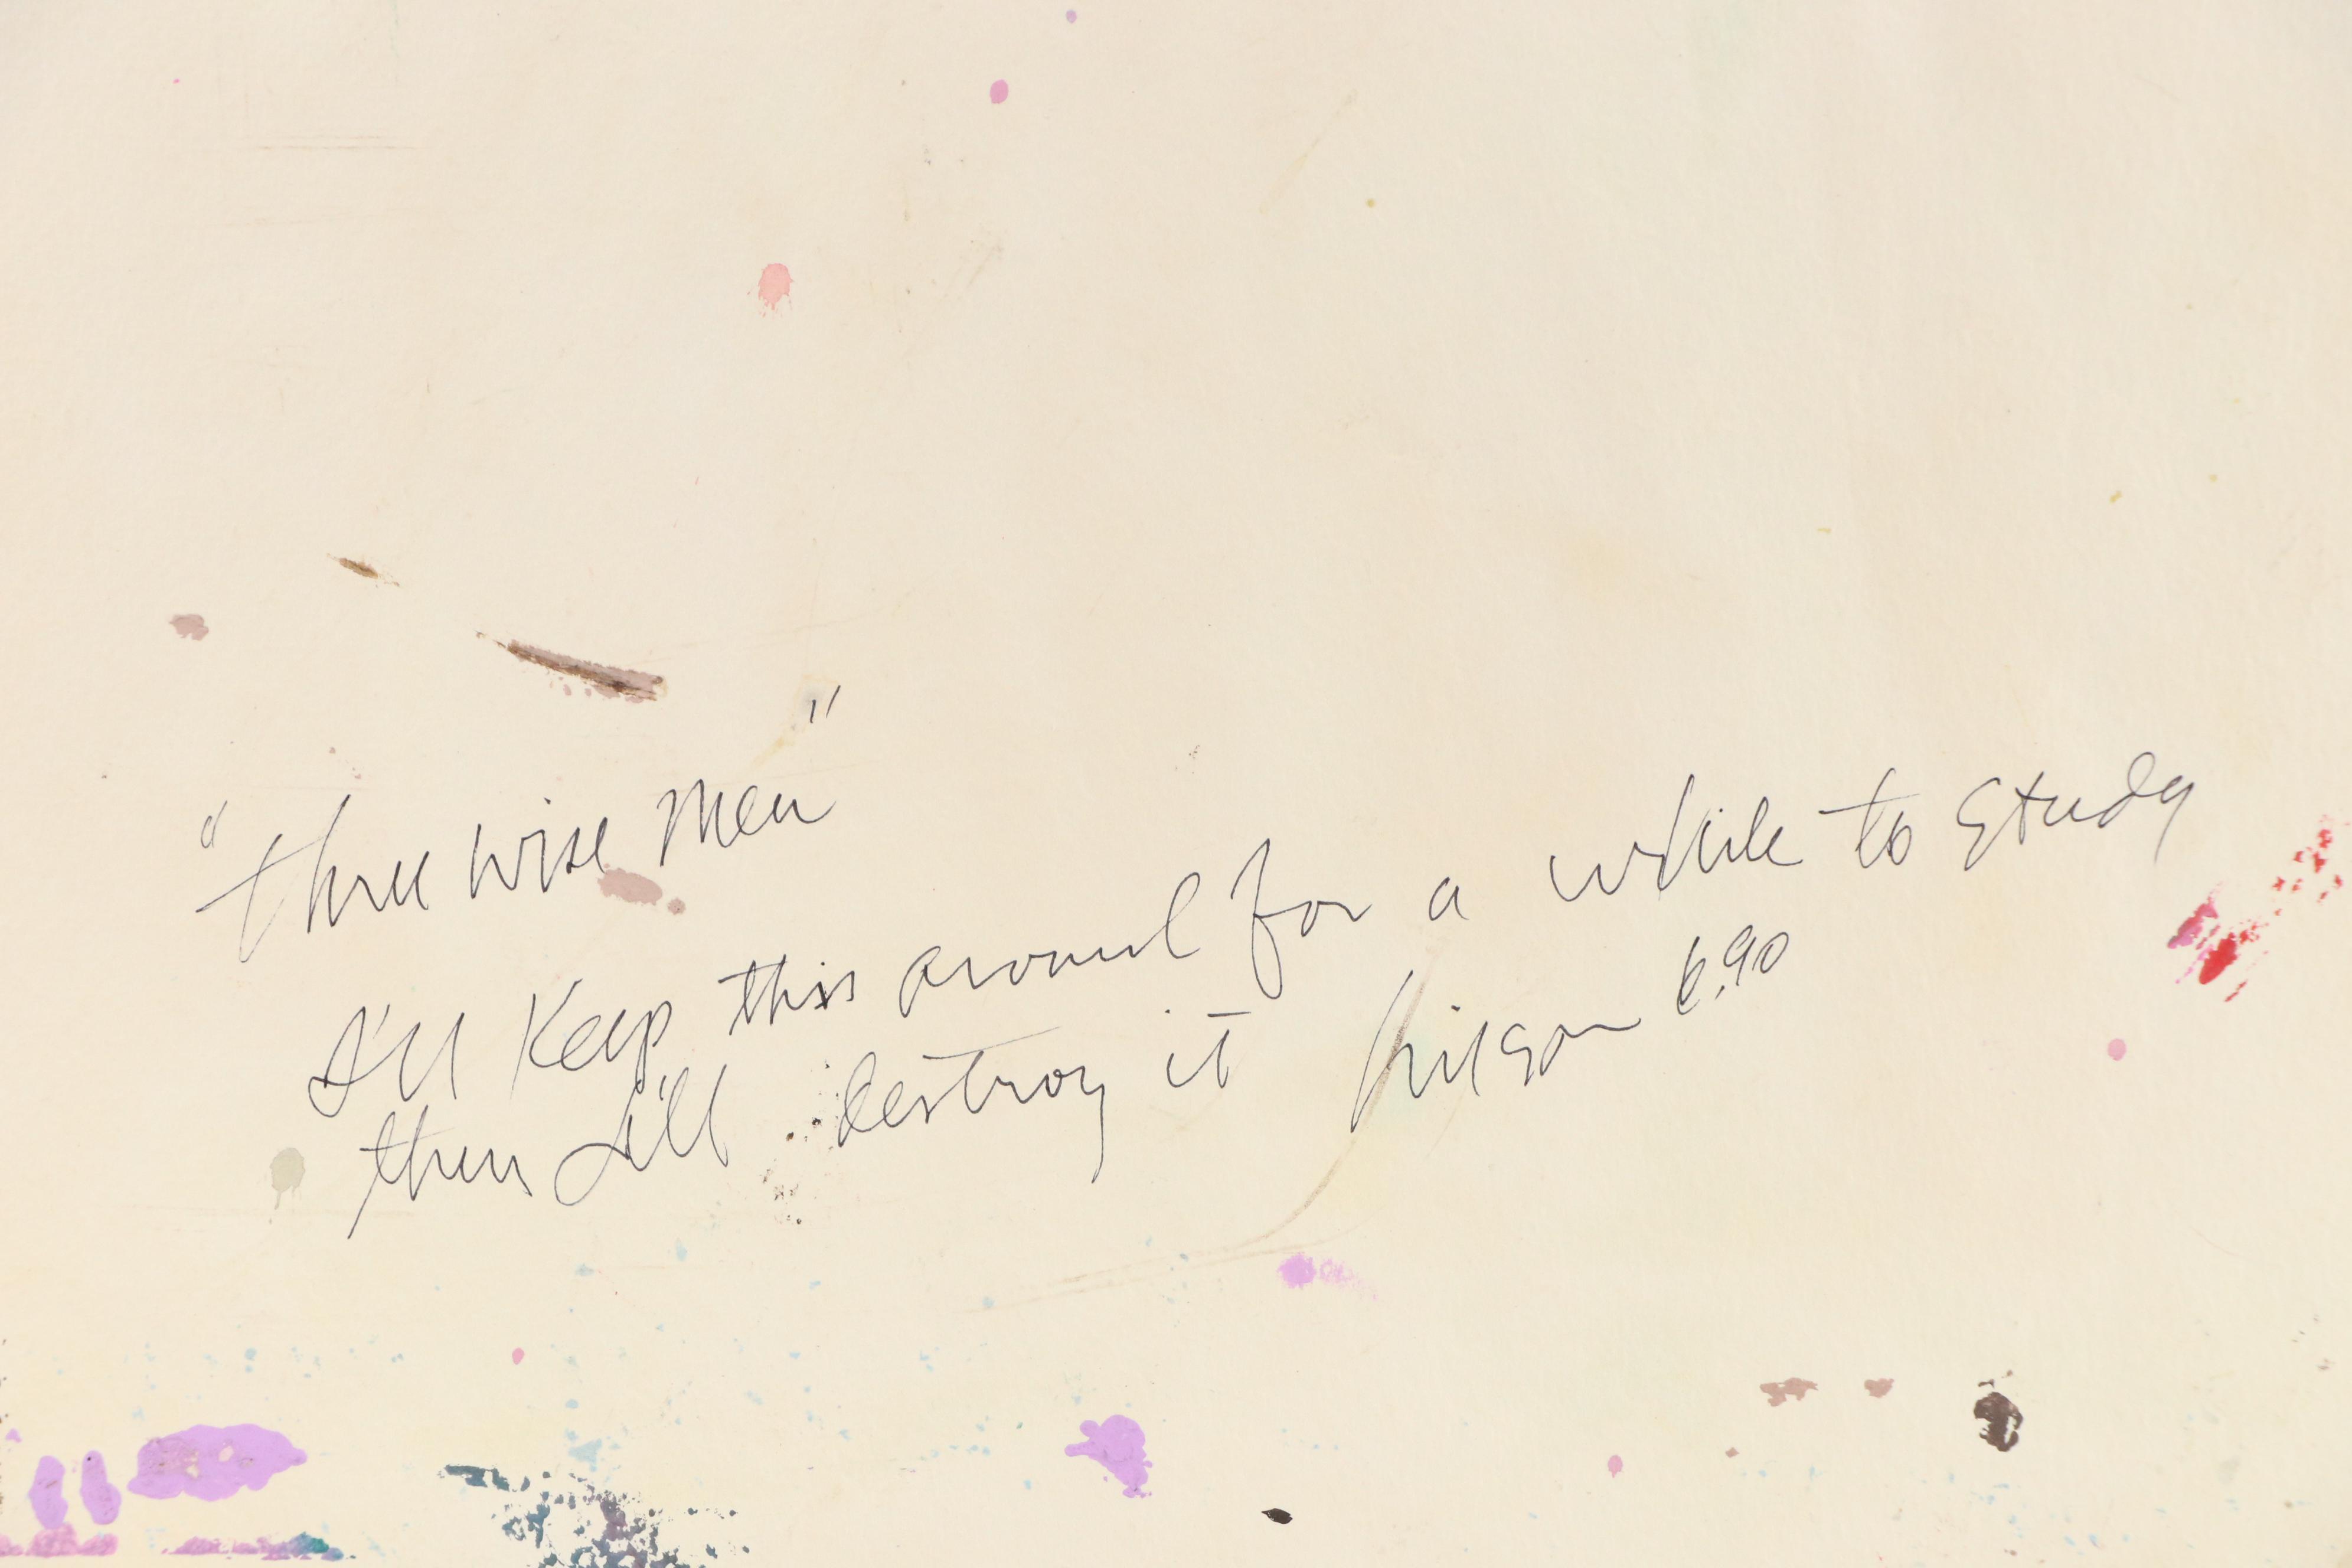 "Three wise Men"
I'll Keep this around for a while to study
then I'll destroy it Wilson 6.90